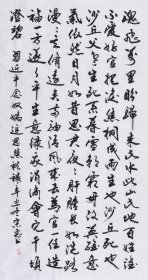 魂飛萬里盼歸來此水此山此地百姓谁
不愛好官把淚焦桐成雨生也沙丘死也
沙丘父老生死系暮雪朝霜毋改英雄意
氣依然月明如昔思君夜夜肝膽長如洗路
漫漫其修遠矣兩袖清風來去為官一任造
福一方遂了平生意绿我涓滴會它千頃
澄碧 習近平念奴嬌追思焦裕禄